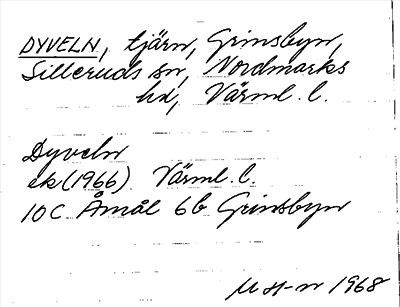 DYVELN, tjärn, Grinsbyn,
Silleruds sn, Nordmarks
hd, Värml. l.
Dyveln
ek (1966) Värml. l.
10C Åmål 6b Grinsbyn
1968